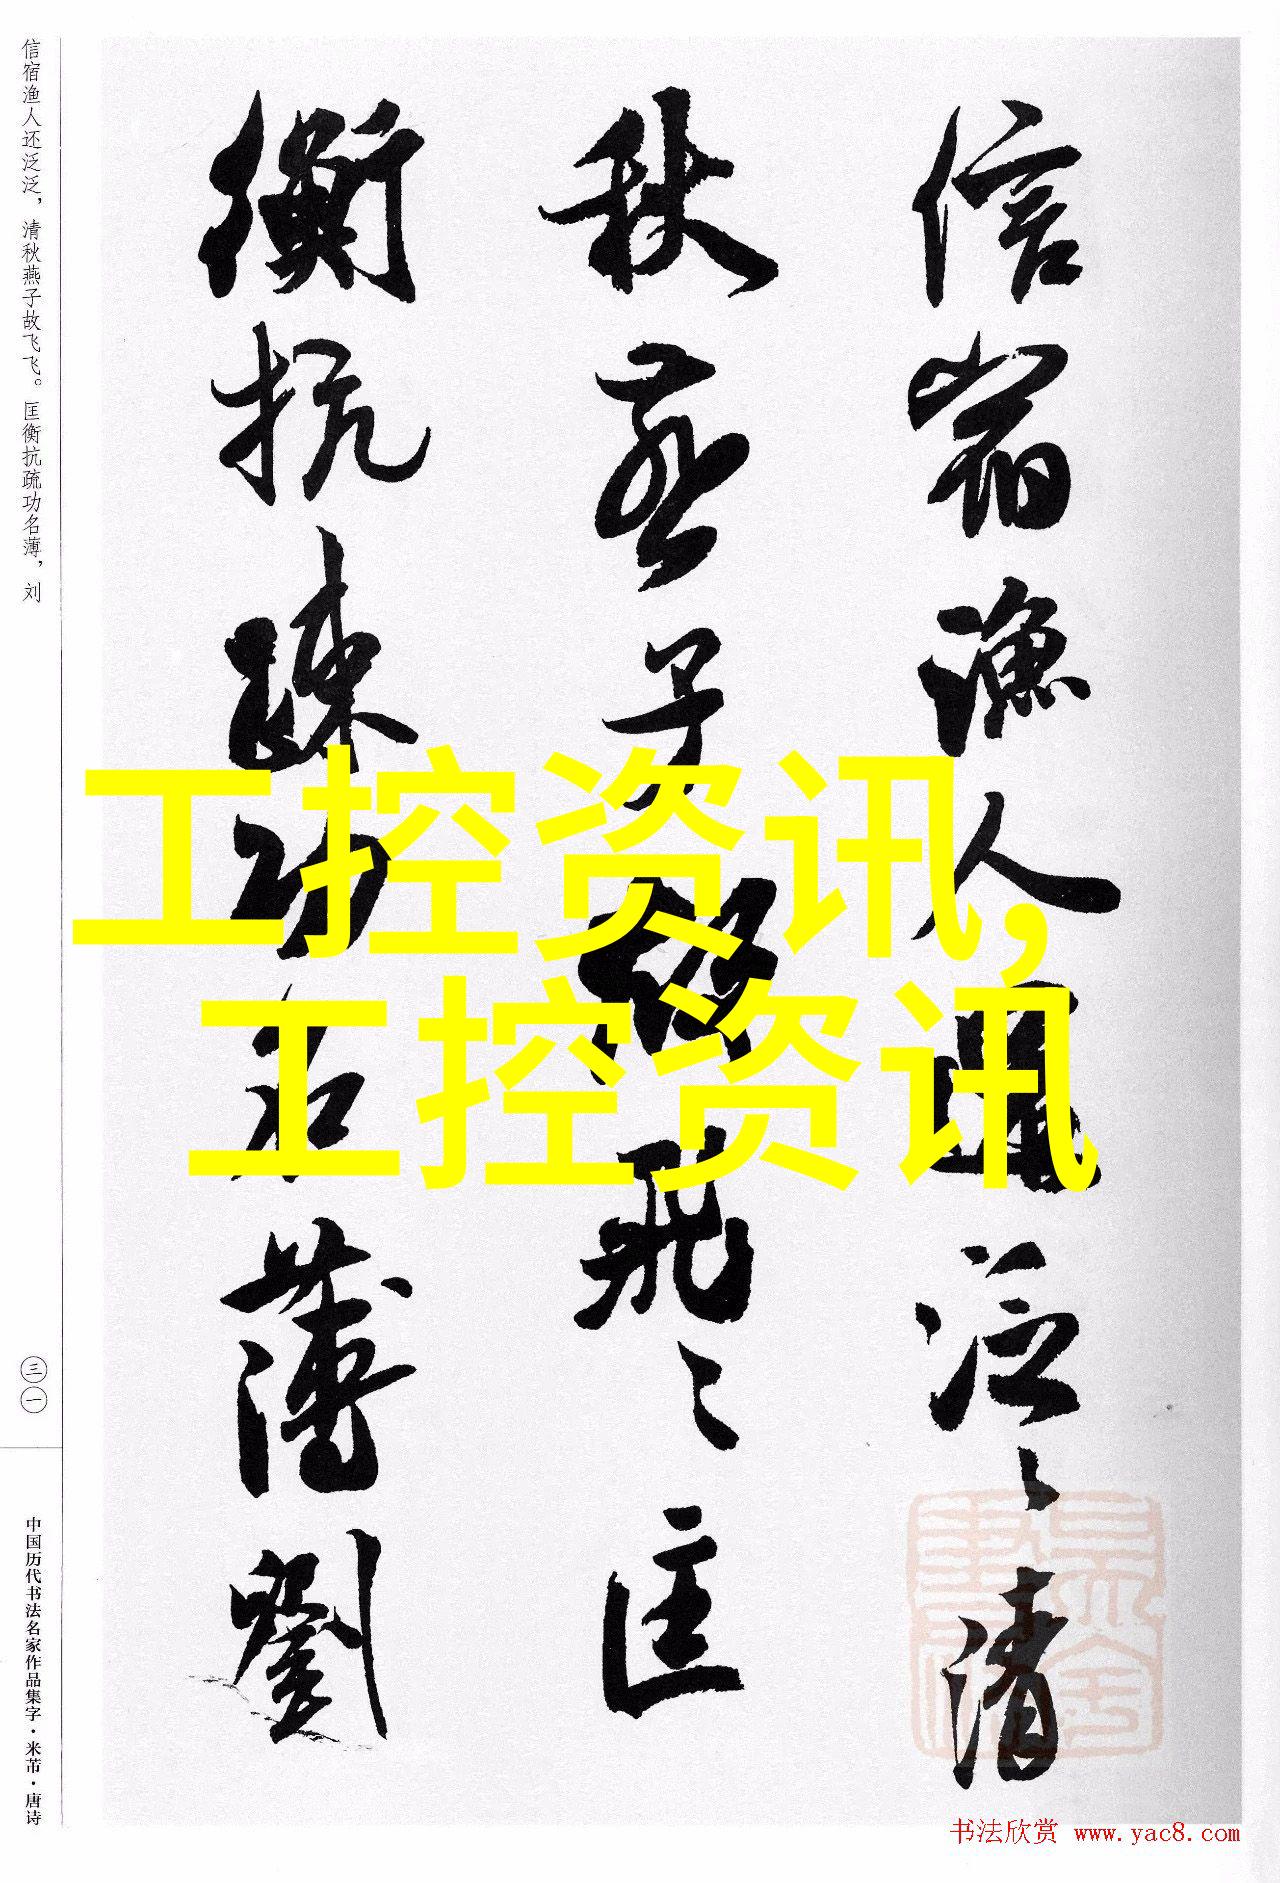 信宿渔人还泛泛，清秋燕子故飞飞。匡衡抗疏功名薄，刘
信宿渔人还泛〻清
秋燕子故飞〻匡
衡抗疏功名薄劉
工控资讯,
工控资讯
三一
中国历代书法名家作品集字·米芾·唐诗
书法欣赏 www.yac8.com